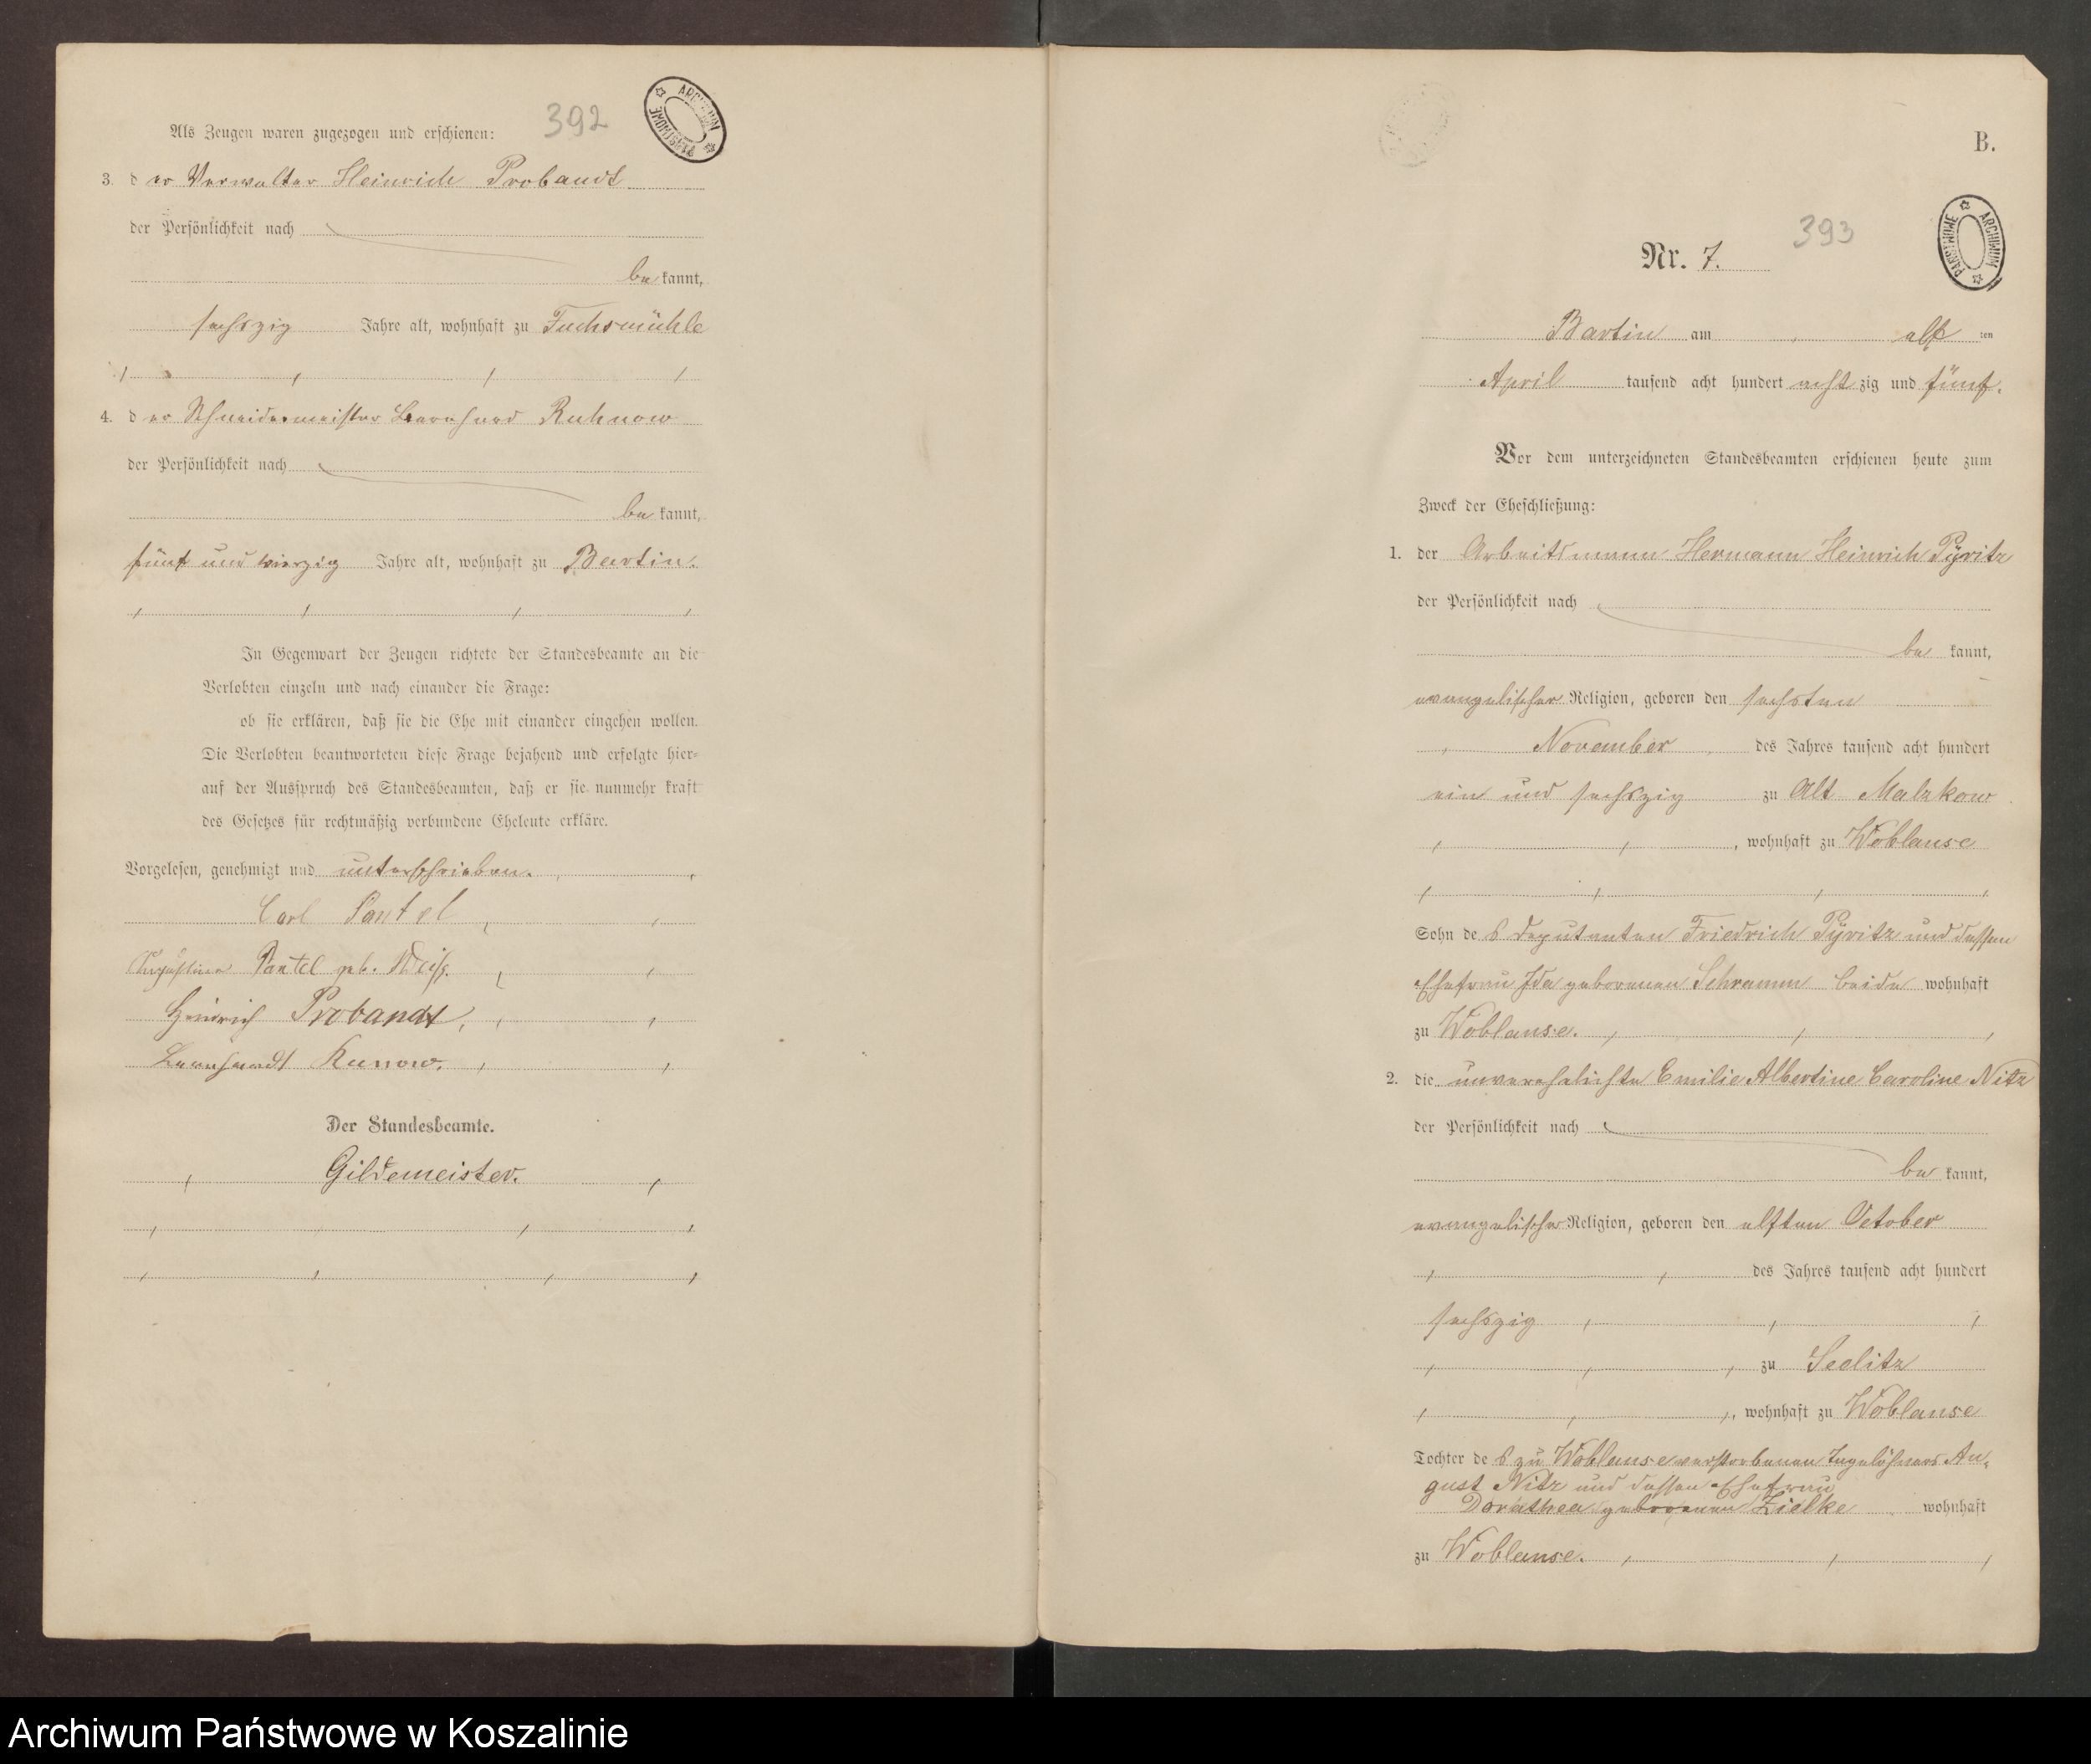 392
ARCHIWUM PAŃSTWOWE
Als Zeugen waren zugezogen und erschienen:
3. der Verwalter Heinrich Probandt
der Persönlichkeit nach
bekannt,
sechszig Jahre alt, wohnhaft zu Fuchsmühle
4. der Schneidermeister Bernhard Ruhnow
der Persönlichkeit nach
bekannt,
fünf und vierzig Jahre alt, wohnhaft zu Bartin.
In Gegenwart der Zeugen richtete der Standesbeamte an die
Verlobten einzeln und nach einander die Frage:
ob sie erklären, daß sie die Ehe mit einander eingehen wollen.
Die Verlobten beantworteten diese Frage bejahend und erfolgte hier-
auf der Ausspruch des Standesbeamten, daß er sie nunmehr kraft
des Gesetzes für rechtmäßig verbundene Eheleute erkläre.
Vorgelesen, genehmigt und unterschrieben.
Carl Pantel
Augustine Pantel geb. Weiß.
Heinrich Probandt,
Bernhardt Kunow.
Der Standesbeamte.
Gildemeister.
B.
393
ARCHIWUM PAŃSTWOWE
Nr. 7.
Bartin am elf ten
April tausend acht hundert acht zig und fünf.
Vor dem unterzeichneten Standesbeamten erschienen heute zum
Zweck der Eheschließung:
1. der Arbeitsmann Hermann Heinrich Pÿritz
der Persönlichkeit nach
be kannt,
evangelischer Religion, geboren den sechsten
November des Jahres tausend acht hundert
ein und sechszig zu Alt Malzkow
, wohnhaft zu Woblanse
Sohn des Deputanten Friedrich Pÿritz und dessen
Ehefrau Ida geborenen Schramm beide wohnhaft
zu Woblanse.
2. die unverehelichte Emilie Albertine Caroline Nitz
der Persönlichkeit nach
be kannt,
evangelischer Religion, geboren den elften October
des Jahres tausend acht hundert
sechszig
zu Seelitz
, wohnhaft zu Woblanse
Tochter des zu Woblanse verstorbenen Tagelöhners Au-
gust Nitz und dessen Ehefrau
Dorathea geborenen Zielke wohnhaft
zu Woblanse.
Archiwum Państwowe w Koszalinie